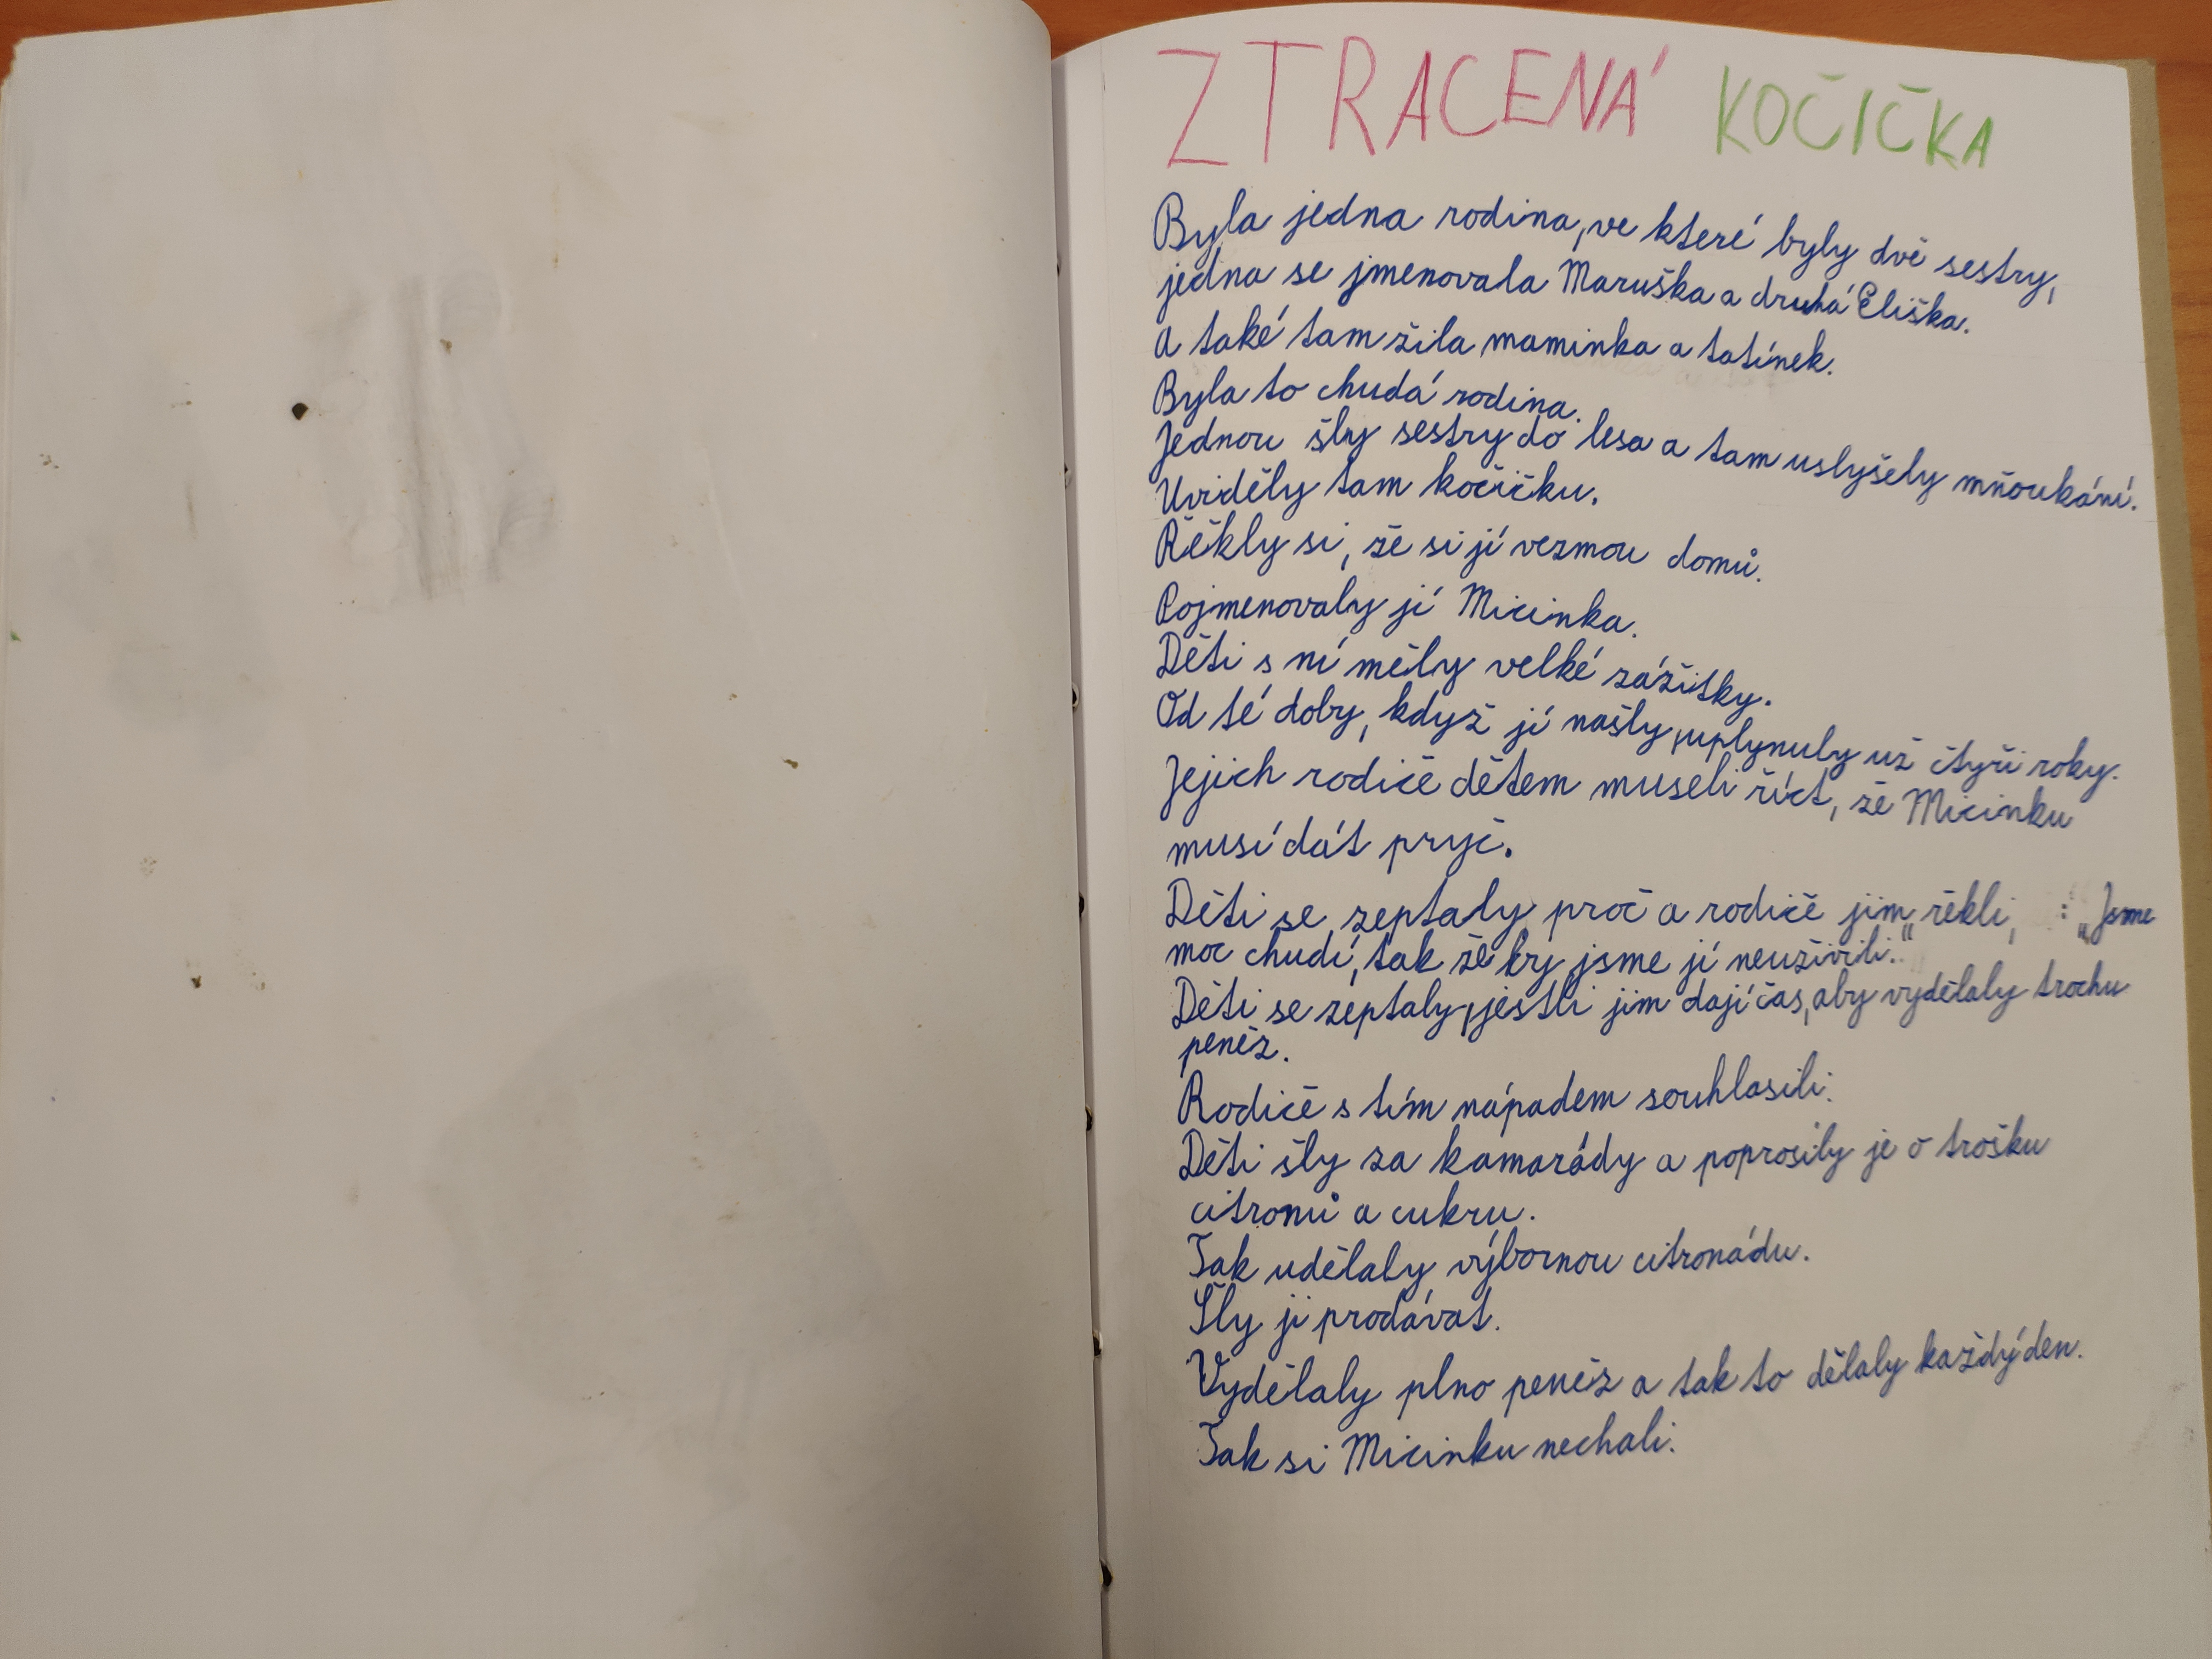 ZTRACENÁ KOČIČKA
Byla jedna rodina, ve které byly dvě sestry,
jedna se jmenovala Maruška a druhá Eliška.
A také tam žila maminka a tatínek.
Byla to chudá rodina.
Jednou šly sestry do lesa a tam uslyšely mňoukání.
Uviděly tam kočičku.
Řěkly si, že si jí vezmou domů.
Pojmenovaly jí Micinka.
Děti s ní měly velké zážitky.
Od té doby, když jí našly, uplynuly už čtyři roky.
Jejich rodiče dětem museli říct, že Micinku
musí dát pryč.
Děti se zeptaly proč a rodiče jim řěkli, : „Jsme
moc chudí, tak že by jsme jí neuživili."
Děti se zeptaly, jestli jim dají čas, aby vydělaly trochu
peněz.
Rodiče s tím nápadem souhlasili.
Děti šly za kamarády a poprosily je o trošku
citronů a cukru.
Tak udělaly výbornou citronádu.
Šly ji prodávat.
Vydělaly plno peněz a tak to dělaly každý den.
Tak si Micinku nechali.